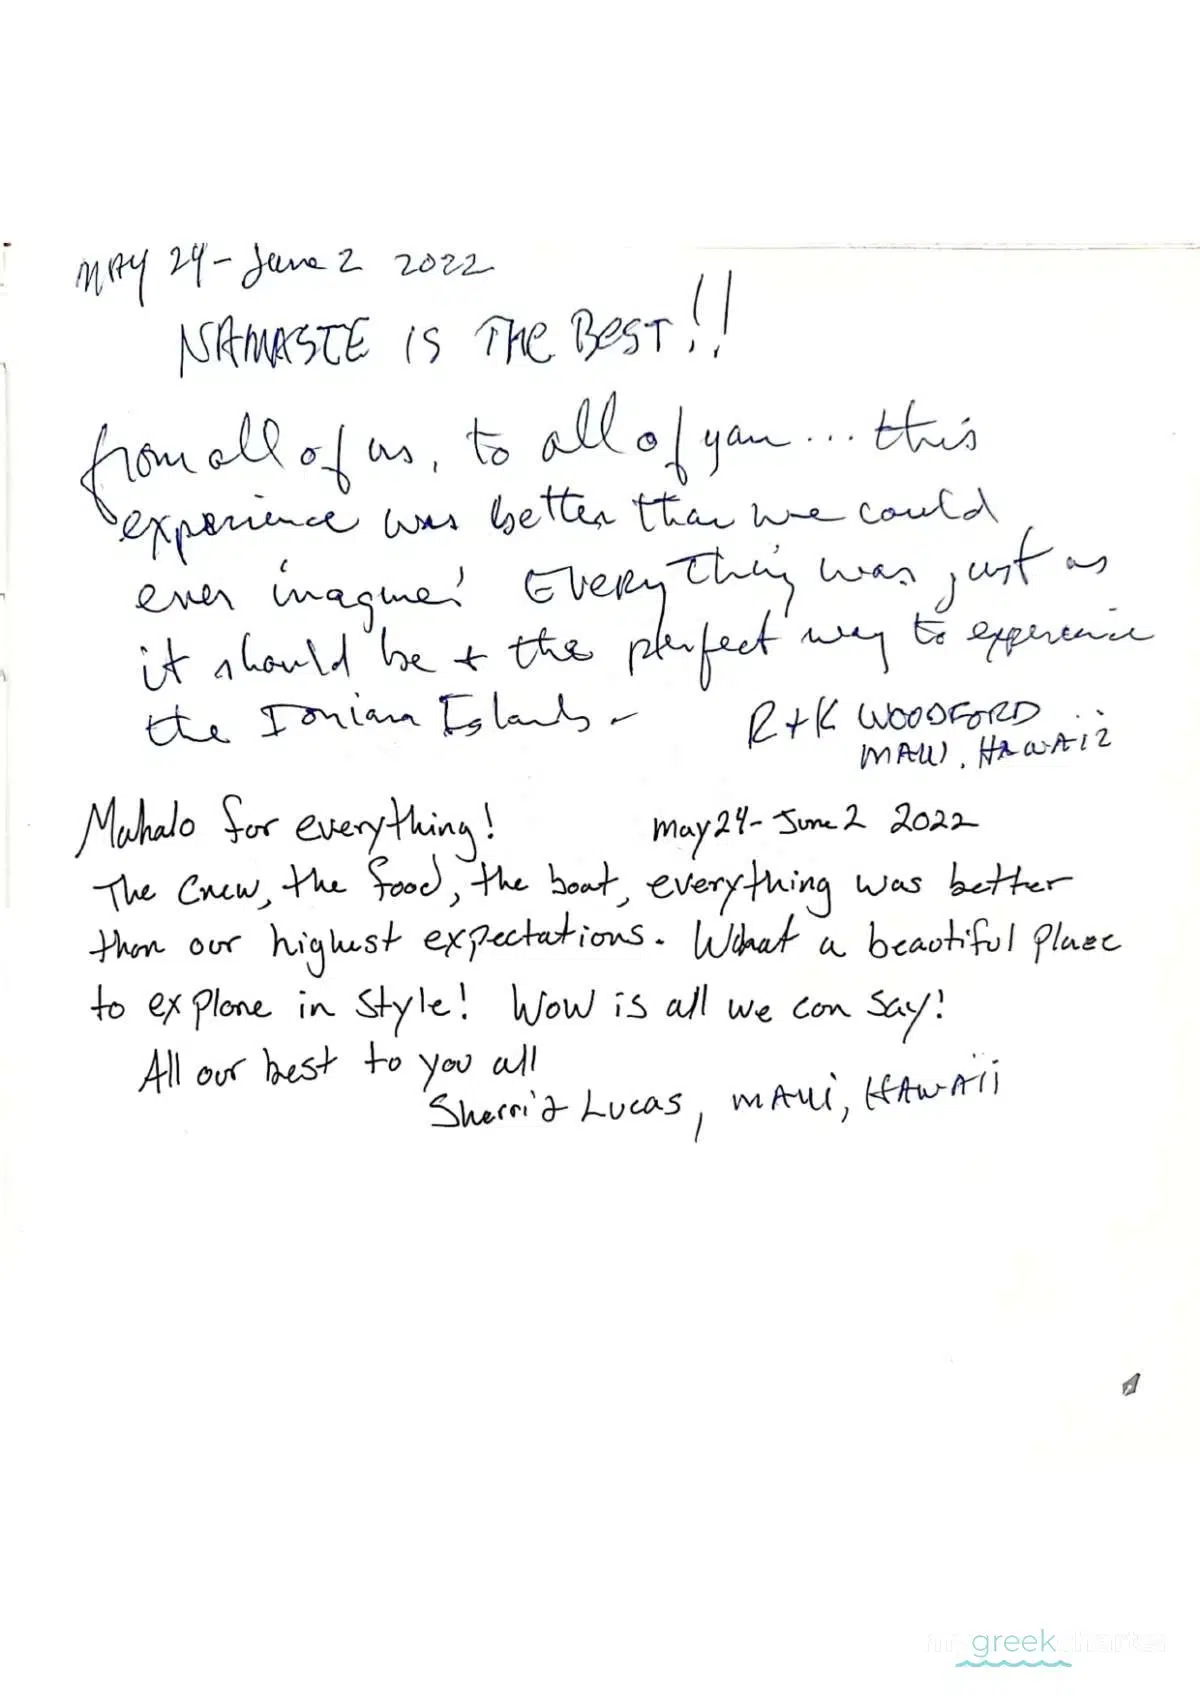 MAY 24 - June 2 2022
NAMASTE IS THE BEST!!
from all of us, to all of you ... this
experience was better than we could
ever imagine! Everything was just as
it should be + the perfect way to experience
the Ionian Islands -
R + K WOODFORD
MAUI, HAWAII
Mahalo for everything!
May 24 - June 2 2022
The Crew, the food, the boat, everything was better
than our highest expectations. What a beautiful place
to explore in style! Wow is all we can say!
All our best to you all
Sherri & Lucas, MAUI, HAWAII
greek